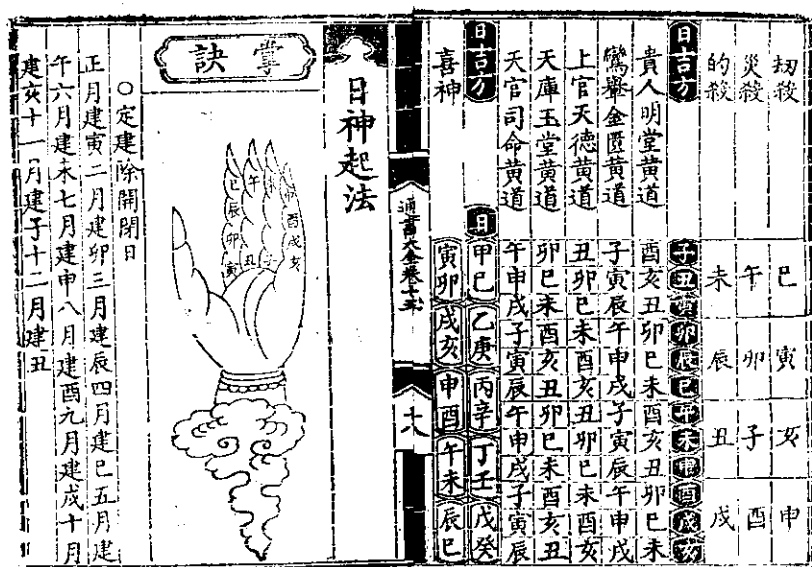 刼殺 巳 寅 亥 申
災殺 午 卯 子 酉
的殺 未 辰 丑 戌
日吉方 子丑寅卯辰巳午未申酉戌亥
貴人明堂黄道 酉亥丑卯巳未酉亥丑卯巳未
鸞輿金匱黄道 子寅辰午申戌子寅辰午申戌
上官天德黄道 丑卯巳未酉亥丑卯巳未酉亥
天庫玉堂黄道 卯巳未酉亥丑卯巳未酉亥丑
天官司命黄道 午申戌子寅辰午申戌子寅辰
日吉方 日 甲巳 乙庚 丙辛 丁壬 戊癸
喜神 寅卯 戌亥 申酉 午未 辰巳
通書大全卷十五 十八
日神起法
掌訣
酉戌亥
子
午丑
巳辰卯寅
○定建除開閉日
正月建寅二月建卯三月建辰四月建巳五月建
午六月建未七月建申八月建酉九月建戌十月
建亥十一月建子十二月建丑